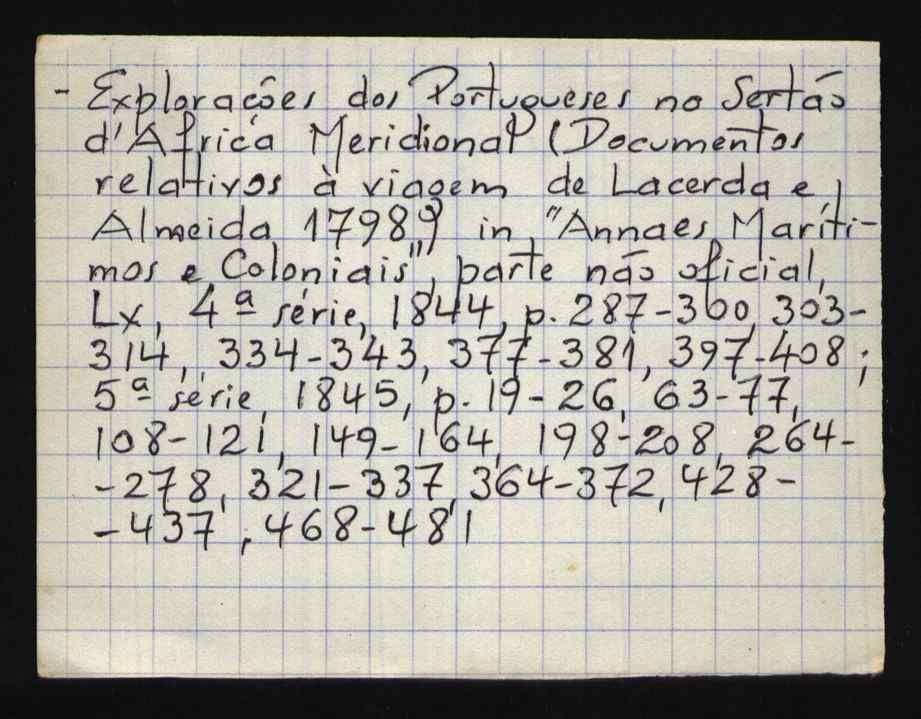 - Explorações dos Portugueses no Sertão
d'Africa Meridional (Documentos
relativos à viagem de Lacerda e
Almeida 1798?) in "Annaes Maríti-
mos e Coloniais", parte não oficial,
Lx, 4ª série, 1844, p. 287-300, 303-
314, 334-343, 377-381, 397-408;
5ª série, 1845, p. 19-26, 63-77,
108-121, 149-164, 198-208, 264-
-278, 321-337, 364-372, 428-
-437, 468-481